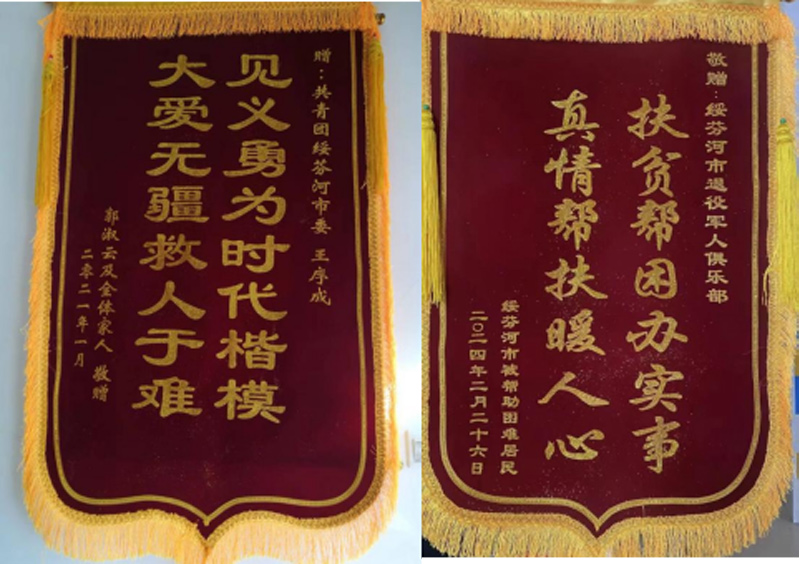 赠：共青团绥芬河市委 王序成
见义勇为时代楷模
大爱无疆救人于难
郭淑云及全体家人 敬赠
二零二一年一月
敬赠：绥芬河市退役军人俱乐部
扶贫帮困办实事
真情帮扶暖人心
绥芬河市被帮助困难居民
二〇二四年二月二十六日